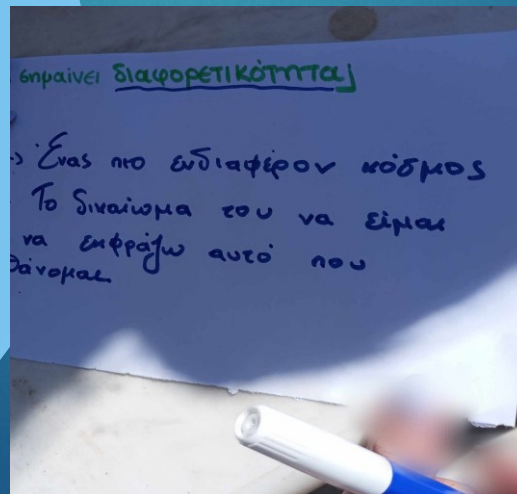 σημαίνει διαφορετικότητα;
Ένας πιο ενδιαφέρον κόσμος
Το δικαίωμα του να είμαι
να εκφράζω αυτό που
θάνομαι